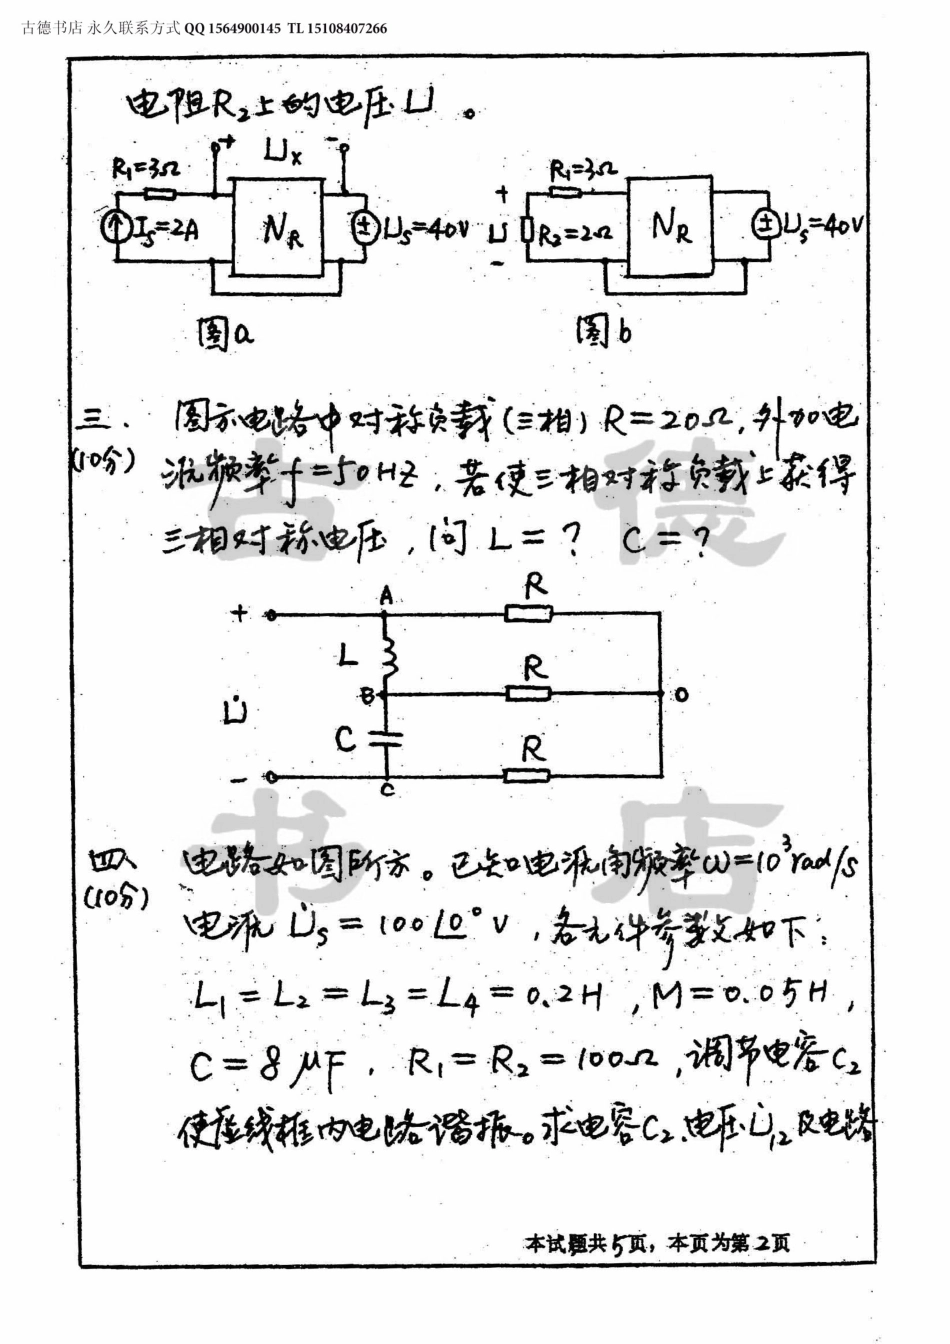 古德书店 永久联系方式 QQ 1564900145 TL 15108407266
电阻R₂上的电压U。
+ Uₓ -
R₁=3Ω
Iₛ=2A
N_R
Uₛ=40V
图a
R₁=3Ω
+
U
-
R₂=2Ω
N_R
Uₛ=40V
图b
三.
(10分)
图示电路中对称负载(三相)R=20Ω,外加电
源频率f=50HZ,若使三相对称负载上获得
三相对称电压,问L=? C=?
+
A
R
L
B
R
O
U̇
C
R
-
C
四、
(10分)
电路如图所示。已知电源角频率ω=10³rad/s
电源U̇ₛ=100∠0°V,各元件参数如下:
L₁=L₂=L₃=L₄=0.2H,M=0.05H,
C=8μF,R₁=R₂=100Ω,调节电容C₂
使虚线框内电路谐振。求电容C₂、电压U̇₁₂及电路
本试题共5页,本页为第2页
古德
书店